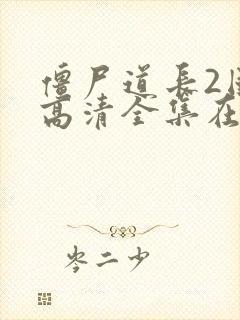 僵尸道长2国
高清全集在
岑二少